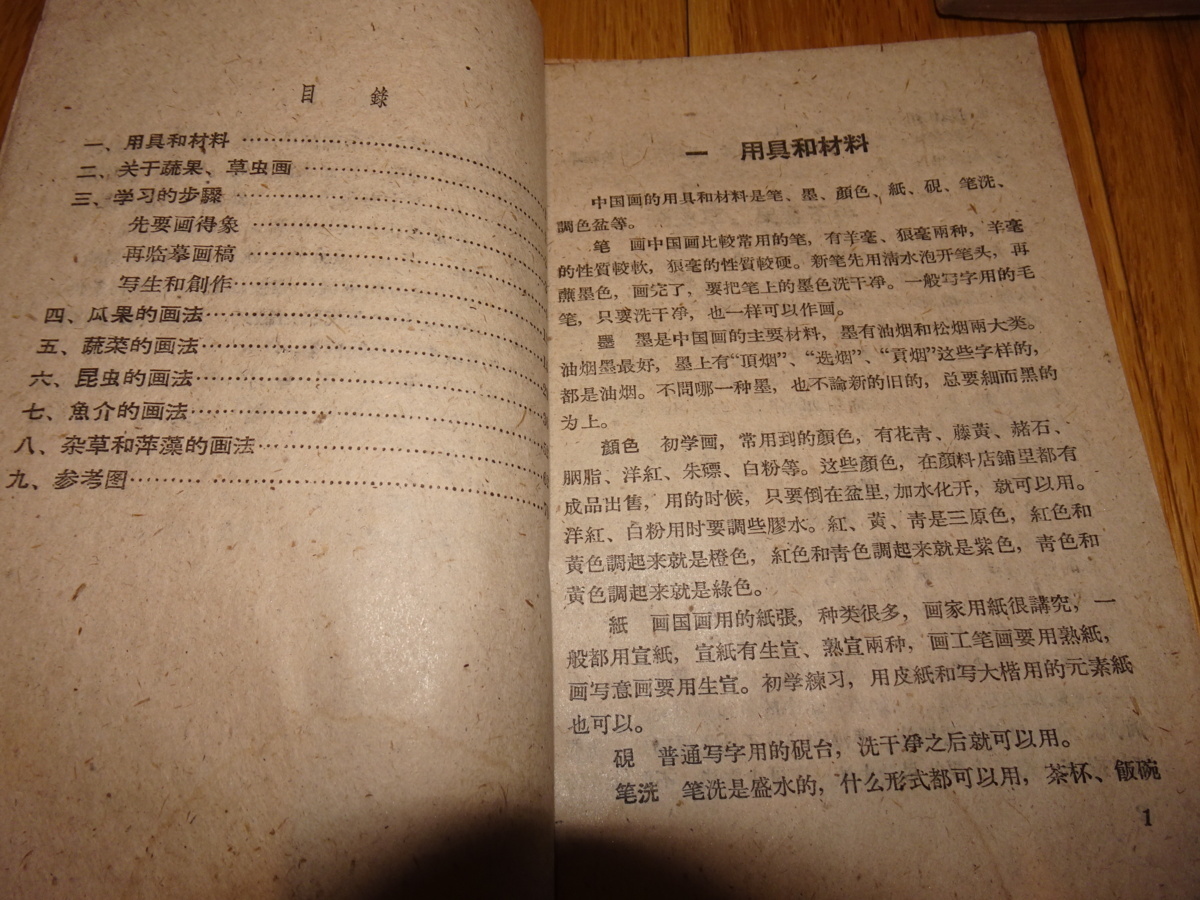 目 錄
一、用具和材料
二、关于蔬果、草虫画
三、学习的步驟
先要画得象
再临摹画稿
写生和創作
四、瓜果的画法
五、蔬菜的画法
六、昆虫的画法
七、魚介的画法
八、杂草和萍藻的画法
九、参考图
一 用具和材料
中国画的用具和材料是笔、墨、顏色、紙、硯、笔洗、
調色盆等。
笔 画中国画比較常用的笔，有羊毫、狼毫兩种，羊毫
的性質較軟，狼毫的性質較硬。新笔先用清水泡开笔头，再
蘸墨色，画完了，要把笔上的墨色洗干净。一般写字用的毛
笔，只要洗干净，也一样可以作画。
墨 墨是中国画的主要材料，墨有油烟和松烟兩大类。
油烟墨最好，墨上有“頂烟”、“选烟”、“貢烟”这些字样的，
都是油烟。不問哪一种墨，也不論新的旧的，总要細而黑的
为上。
顏色 初学画，常用到的顏色，有花靑、藤黃、赭石、
胭脂、洋紅、朱磦、白粉等。这些顏色，在顏料店鋪里都有
成品出售，用的时候，只要倒在盆里，加水化开，就可以用。
洋紅、白粉用时要調些膠水。紅、黃、靑是三原色，紅色和
黃色調起来就是橙色，紅色和靑色調起来就是紫色，靑色和
黃色調起来就是綠色。
紙 画国画用的紙張，种类很多，画家用紙很講究，一
般都用宣紙，宣紙有生宣、熟宣兩种，画工笔画要用熟紙，
画写意画要用生宣。初学練习，用皮紙和写大楷用的元素紙
也可以。
硯 普通写字用的硯台，洗干净之后就可以用。
笔洗 笔洗是盛水的，什么形式都可以用，茶杯、飯碗
1